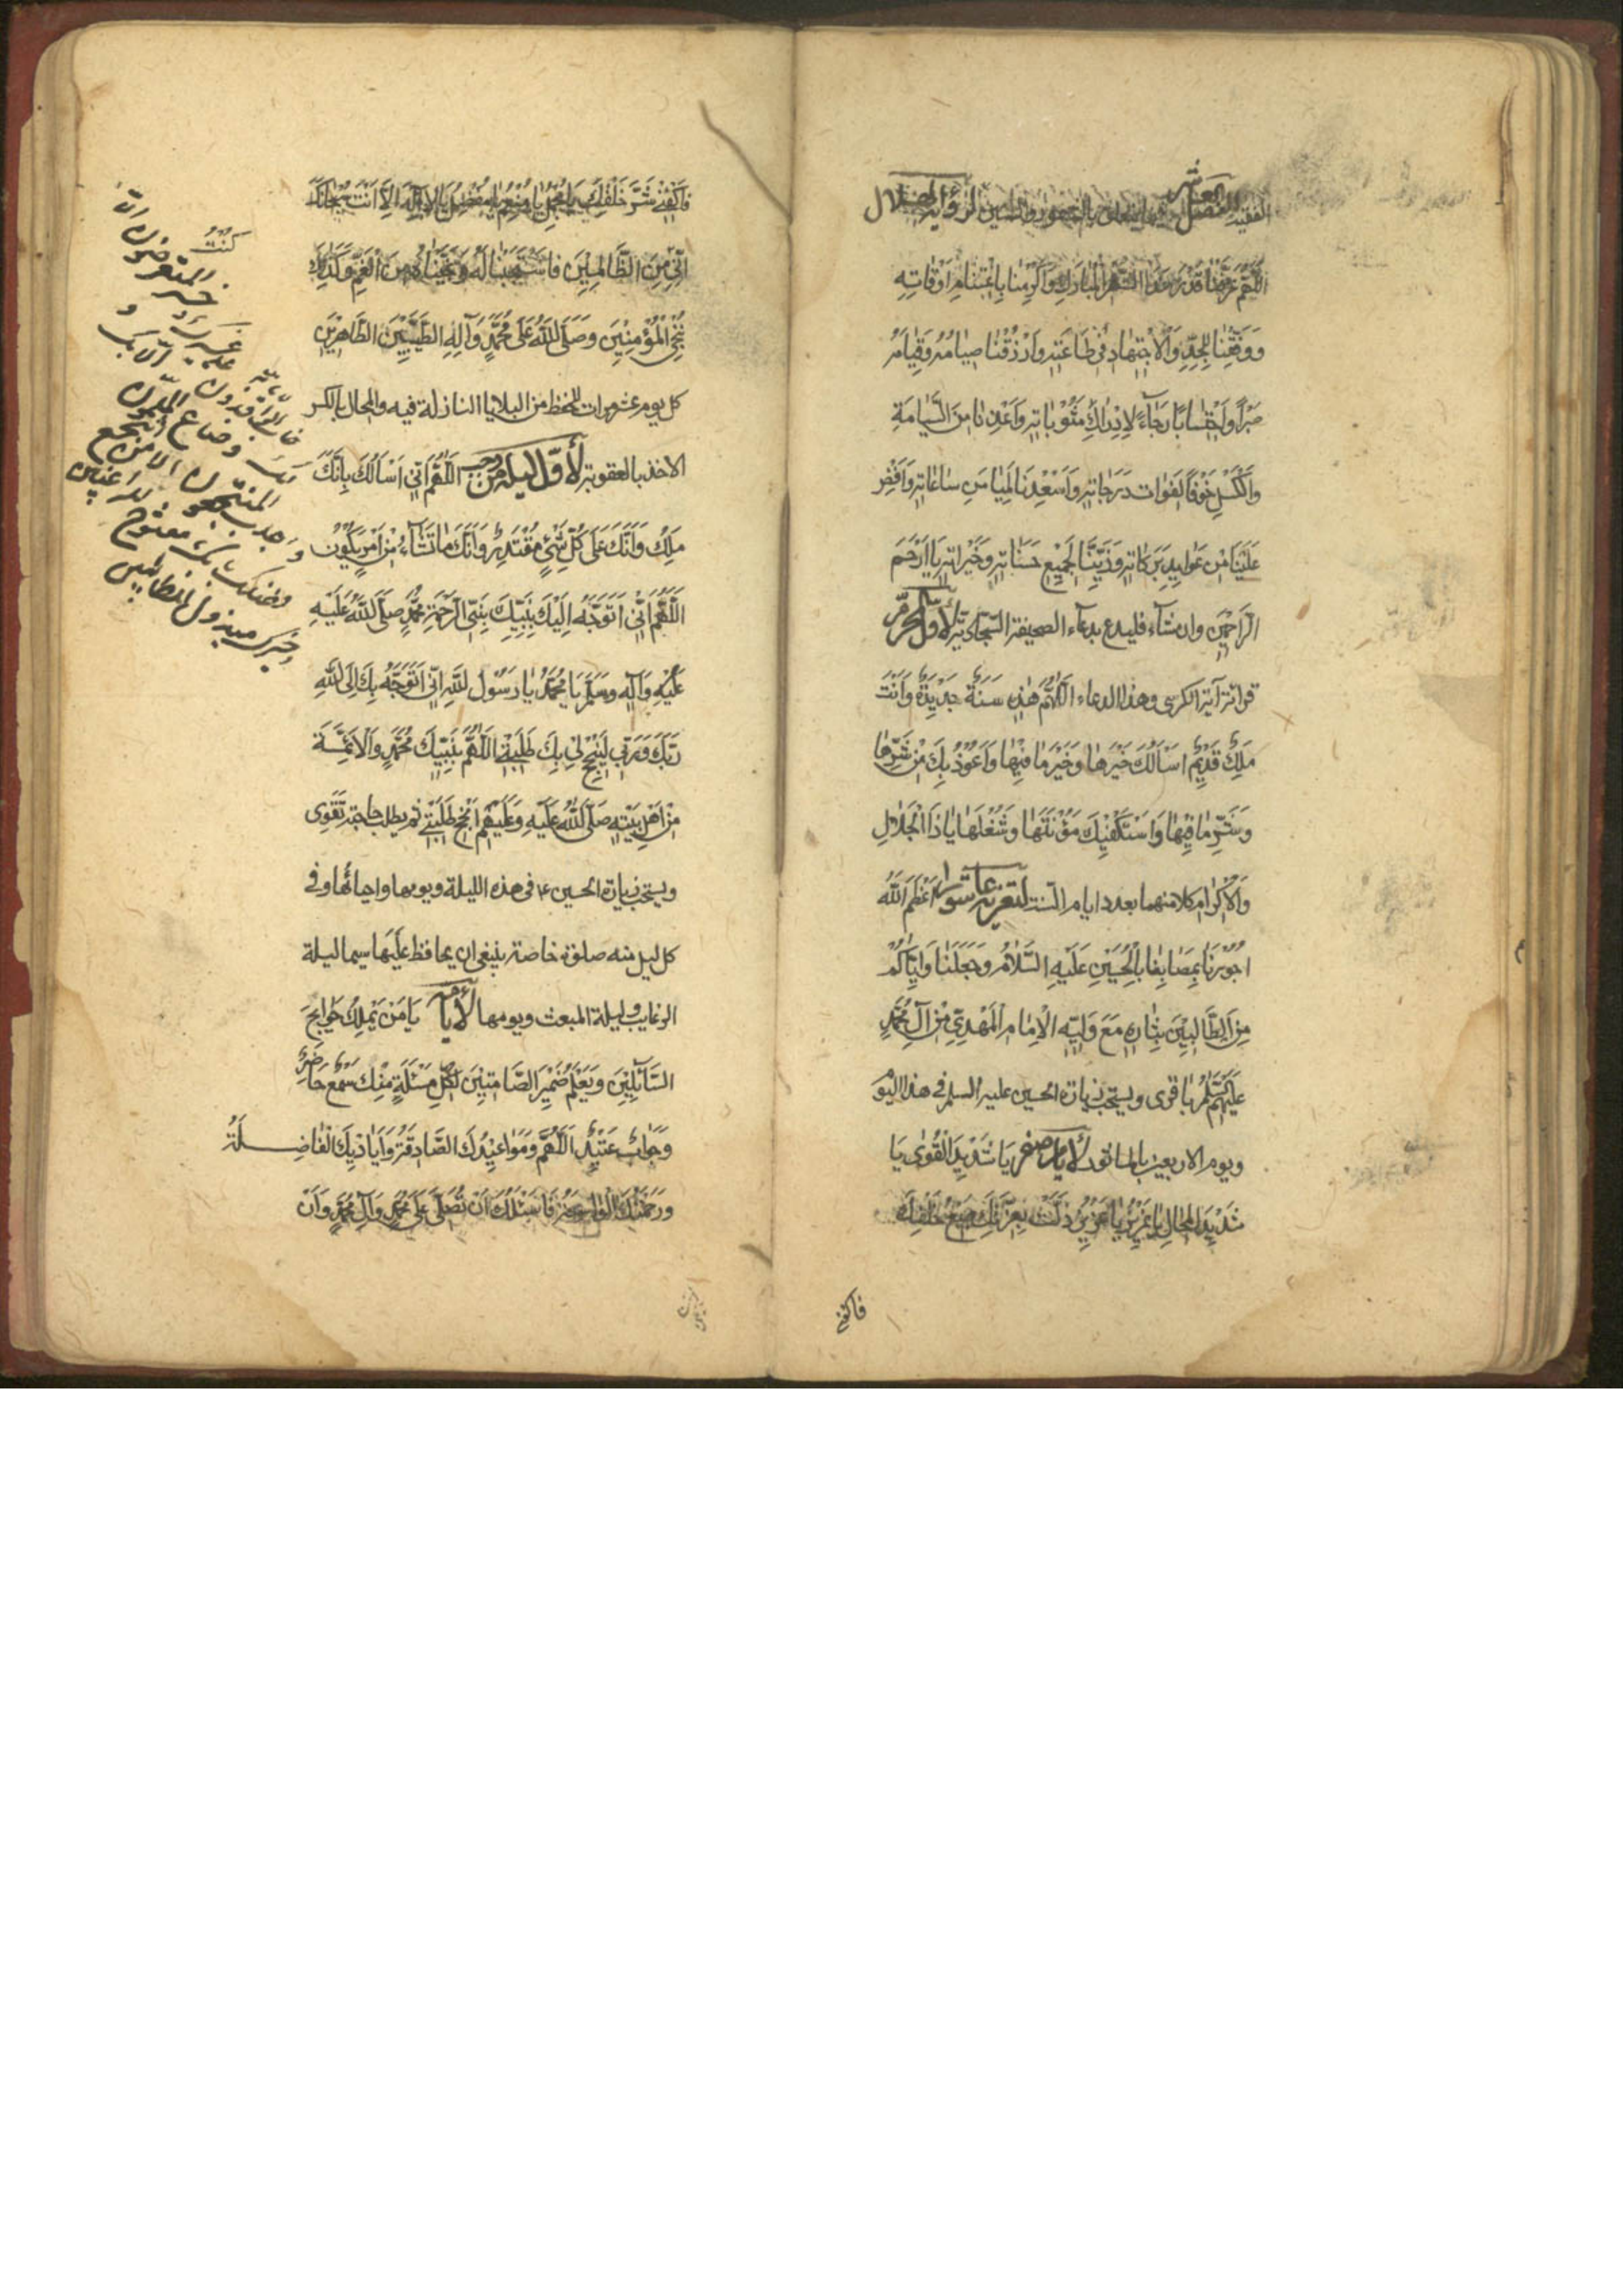 الفصل العشر فيما يتعلق بالشهور والسنين لرؤية الهلال
اَللّٰهُمَّ عَرِّفْنَا قَدْرَ هٰذَا الشَّهْرِ الْمُبَارَكِ وَاَكْرِمْنَا بِاغْتِنَامِ اَوْقَاتِهِ
وَوَفِّقْنَا لِلْجِدِّ وَالْاِجْتِهَادِ فِي طَاعَتِهِ وَارْزُقْنَا صِيَامَهُ وَقِيَامَهُ
صَبْرًا وَاحْتِسَابًا رَجَاءً لِاِدْرَاكِ مَثُوبَاتِهِ وَاَعِذْنَا مِنَ السَّامَةِ
وَالْكَسَلِ خَوْفًا لِفَوَاتِ دَرَجَاتِهِ وَاَسْعِدْنَا بِمَيَامِنِ سَاعَاتِهِ وَاَفِضْ
عَلَيْنَا مِنْ عَوَايِدِ بَرَكَاتِهِ وَزَيِّنَّا بِجَمِيعِ حَسَنَاتِهِ وَخَيْرَاتِهِ يَا اَرْحَمَ
الرَّاحِمِينَ وان شاء فليدع بدعاء الصحيفة السجادية لأول المحرم
قرائة آية الكرسى وهذا الدعاء اَللّٰهُمَّ هٰذِهِ سَنَةٌ جَدِيدَةٌ وَاَنْتَ
مَلِكٌ قَدِيمٌ اَسْاَلُكَ خَيْرَهَا وَخَيْرَ مَا فِيهَا وَاَعُوذُ بِكَ مِنْ شَرِّهَا
وَشَرِّ مَا فِيهَا وَاَسْتَكْفِيكَ مَؤُنَتَهَا وَشُغْلَهَا يَا ذَا الْجَلَالِ
وَالْاِكْرَامِ كلا منهما بعدد ايام السنة لتعزية عاشورا اَعْظَمَ اللّٰهُ
اُجُورَنَا بِمُصَابِنَا بِالْحُسَيْنِ عَلَيْهِ السَّلَامُ وَجَعَلَنَا وَاِيَّاكُمْ
مِنَ الطَّالِبِينَ بِثَارِهِ مَعَ وَلِيِّهِ الْاِمَامِ الْمَهْدِيِّ مِنْ آلِ مُحَمَّدٍ
عليهم السلم باقرى ويستحب زيارة الحسين عليه السلم في هذا اليوم
ويوم الاربعين بالماثور لأيام صفر يَا شَدِيدَ الْقُوٰى يَا
شَدِيدَ الْمِحَالِ يَا عَزِيزُ يَا عَزِيزُ ذَلَّتْ بِعِزَّتِكَ جَمِيعُ خَلْقِكَ
فاكفنى
فَاكْفِنِي شَرَّ خَلْقِكَ يَا مُجْمِلُ يَا مُنْعِمُ يَا مُفْضِلُ يَا لَا اِلٰهَ اِلَّا اَنْتَ سُبْحَانَكَ
اِنِّي كُنْتُ مِنَ الظَّالِمِينَ فَاسْتَجَبْنَا لَهُ وَنَجَّيْنَاهُ مِنَ الْغَمِّ وَكَذٰلِكَ
نُنْجِي الْمُؤْمِنِينَ وَصَلَّى اللّٰهُ عَلَى مُحَمَّدٍ وَآلِهِ الطَّيِّبِينَ الطَّاهِرِينَ
كل يوم عشر مرات للحفظ من البلايا النازلة فيه والمحال بالكسر
الاخذ بالعقوبة لأول ليلة من رجب اَللّٰهُمَّ اِنِّي اَسْاَلُكَ بِاَنَّكَ
مَلِكٌ وَاَنَّكَ عَلَى كُلِّ شَيْءٍ مُقْتَدِرٌ وَاَنَّكَ مَا تَشَاءُ مِنْ اَمْرٍ يَكُونُ
اَللّٰهُمَّ اِنِّي اَتَوَجَّهُ اِلَيْكَ بِنَبِيِّكَ نَبِيِّ الرَّحْمَةِ مُحَمَّدٍ صَلَّى اللّٰهُ عَلَيْهِ
عَلَيْهِ وَآلِهِ وَسَلَّمَ يَا مُحَمَّدُ يَا رَسُولَ اللّٰهِ اِنِّي اَتَوَجَّهُ بِكَ اِلَى اللّٰهِ
رَبِّكَ وَرَبِّي لِيُنْجِحَ لِي بِكَ طَلِبَتِي اَللّٰهُمَّ بِنَبِيِّكَ مُحَمَّدٍ وَالْاَئِمَّةِ
مِنْ اَهْلِ بَيْتِهِ صَلَّى اللّٰهُ عَلَيْهِ وَعَلَيْهِمْ اَنْجِحْ طَلِبَتِي ثم يطلب حاجته تقوى
ويستحب زيارة الحسين ع في هذه الليلة ويومها واحيائها وفي
كل ليل منه صلوة خاصة ينبغي ان يحافظ عليها سيما ليلة
الرغايب وليلة المبعث ويومها لأيامه يَا مَنْ يَمْلِكُ حَوَايِجَ
السَّائِلِينَ وَيَعْلَمُ ضَمِيرَ الصَّامِتِينَ لِكُلِّ مَسْئَلَةٍ مِنْكَ سَمْعٌ حَاضِرٌ
وَجَوَابٌ عَتِيدٌ اَللّٰهُمَّ وَمَوَاعِيدُكَ الصَّادِقَةُ وَاَيَادِيكَ الْفَاضِلَةُ
وَرَحْمَتُكَ الْوَاسِعَةُ فَاَسْئَلُكَ اَنْ تُصَلِّيَ عَلَى مُحَمَّدٍ وَآلِ مُحَمَّدٍ وَاَنْ
خاب الوافدون على غيرك
وخسر المتعرضون الا لك
وضاع الملمون الا بك
واجدب المنتجعون الا من انتجع
فضلك بابك مفتوح للراغبين
وخيرك مبذول للطالبين